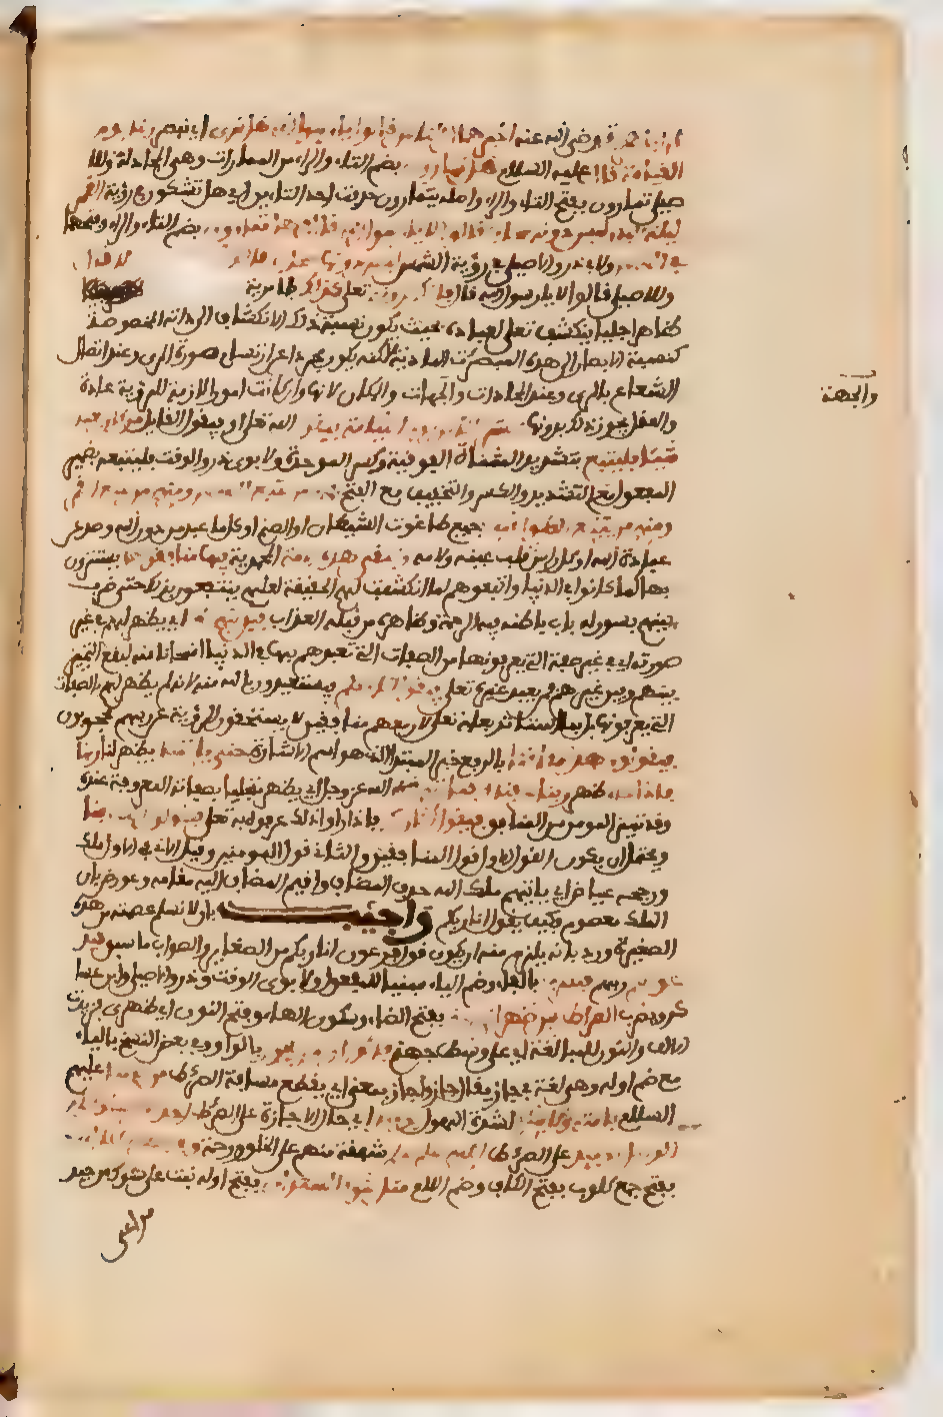 رضي الله عنه اخبرهما ان الناس قالوا يا رسول الله هل نرى ربنا يوم
القيامة قال عليه السلام هل تمارون بضم التاء والراء من الممارات وهي المجادلة وللا
صيلي تمارون بفتح التاء والراء واصله تتمارون حذفت احد التاءين اي هل تشكون في رؤية القمر
ليلة البدر ليس دونه سحاب قالوا لا يا رسول الله قال فهل تمارون بضم التاء والراء وفتحهما
ولابي ذر والاصيلي في رؤية الشمس ليس دونها سحاب قالوا
وللاصيلي قالوا لا يا رسول الله قال فانكم ترونه تعلى كذلك ظاهرية
ظاهرا جليا ينكشف تعلى لعباده بحيث تكون نسبة ذلك الانكشاف الى ذاته المخصوصة
كنسبة الابصار الى هذه المبصرات المادية لاكنه يكون مجردا عن ارتسام صورة المرءي وعن اتصال
الشعاع بالمرءي وعن المحاذات والجهات والمكان لانها وان كانت امورا لازمة للرؤية عادة
والجهة
والعقل يجوز ذلك بدونها يحشر الناس يوم القيامة فيقول الله تعلى او فيقول القايل من كان يعبد
شيئا فليتبع بتشديد المثناة الفوقية وكسر الموحدة ولابوي ذر والوقت فليتبعه بضمير
المفعول مع التشديد والكسر والتخفيف مع الفتح فمنهم من يتبع الشمس ومنهم من يتبع القمر
ومنهم من يتبع الطواغيت جمع طاغوت الشيطان او الصنم او كل ما عبد من دون الله وصد عن
عبادة الله او كل راس ضلال قلب عينه ولامه وتبقى هذه الامة المحمدية فيها منافقوها يستترون
بها كما كانوا في الدنيا واتبعوهم لما انكشفت لهم الحقيقة لعلهم ينتفعون بذلك حتى ضرب
بينهم بسور له باب باطنه فيه الرحمة وظاهره من قبله العذاب فياتيهم الله اي يظهر لهم في غير
صورته اي في غير صفة التي يعرفونها من الصفات التي تعبدهم بها في الدنيا امتحانا منه ليقع التمييز
بينهم وبين غيرهم ممن يعبد غيره تعلى فيقول انا ربكم فيستعيذون بالله منه لانه لم يظهر لهم بالصفات
التي يعرفونها بل بما استاثر بعلمه تعلى لان معهم منافقين لا يستحقون الرؤية عن ربهم محجوبون
فيقولون هذا مكاننا بالرفع خبر المبتدا الذي هو اسم الاشارة حتى ياتينا يظهر لنا ربنا
فاذا جاء ظهر ربنا عرفناه فياتيهم الله عز وجل اي يظهر متجليا بصفاته المعروفة عنده
وقد تميز المومن من المنافق فيقول انا ربكم فاذا راوا ذلك عرفوه به تعلى فيقولون انت ربنا
ويحتمل ان يكون القول الاول قول المنافقين والثاني قول المومنين وقيل الاتي في الاول ملك
ورجحه عياض اي ياتيهم ملك الله حذف المضاف واقيم المضاف اليه مقامه وعورض بان
الملك معصوم وكيف يقول انا ربكم واجيب بان لا نسلم عصمته من هذه
الصغيرة ورد بانه يلزم منه ان يكون قول فرعون انا ربكم من الصغاير والصواب ما سبق
فيدعوهم ربهم فيضرب بالفاء وضم الياء مبنيا للمفعول ولابوي الوقت وذر والاصيلي وابن عسا
كر ويضرب الصراط بين ظهراني جهنم بفتح الظاء وسكون الهاء وفتح النون اي ظهري فزيدت
الالف والنون للمبالغة اي على وسط جهنم فاكون اول من يجوز بالواو وفي بعض النسخ بالياء
مع ضم اوله وهي لغة في جاز يقال جاز واجاز بمعنى اي يقطع مسافة الصراط من الرسل عليهم
السلام بامته ولا يتكلم لشدة الهول يومئذ اي حال الاجازة على الصراط احد الا الرسل
وكلام الرسل يومئذ على الصراط اللهم سلم سلم شفقة منهم على الخلق ورحمة وفي جهنم كلاليب
بفتح جمع كلوب بفتح الكاف وضم اللام مثل شوك السعدان بفتح اوله نبت على شوك من جيد
مراعى